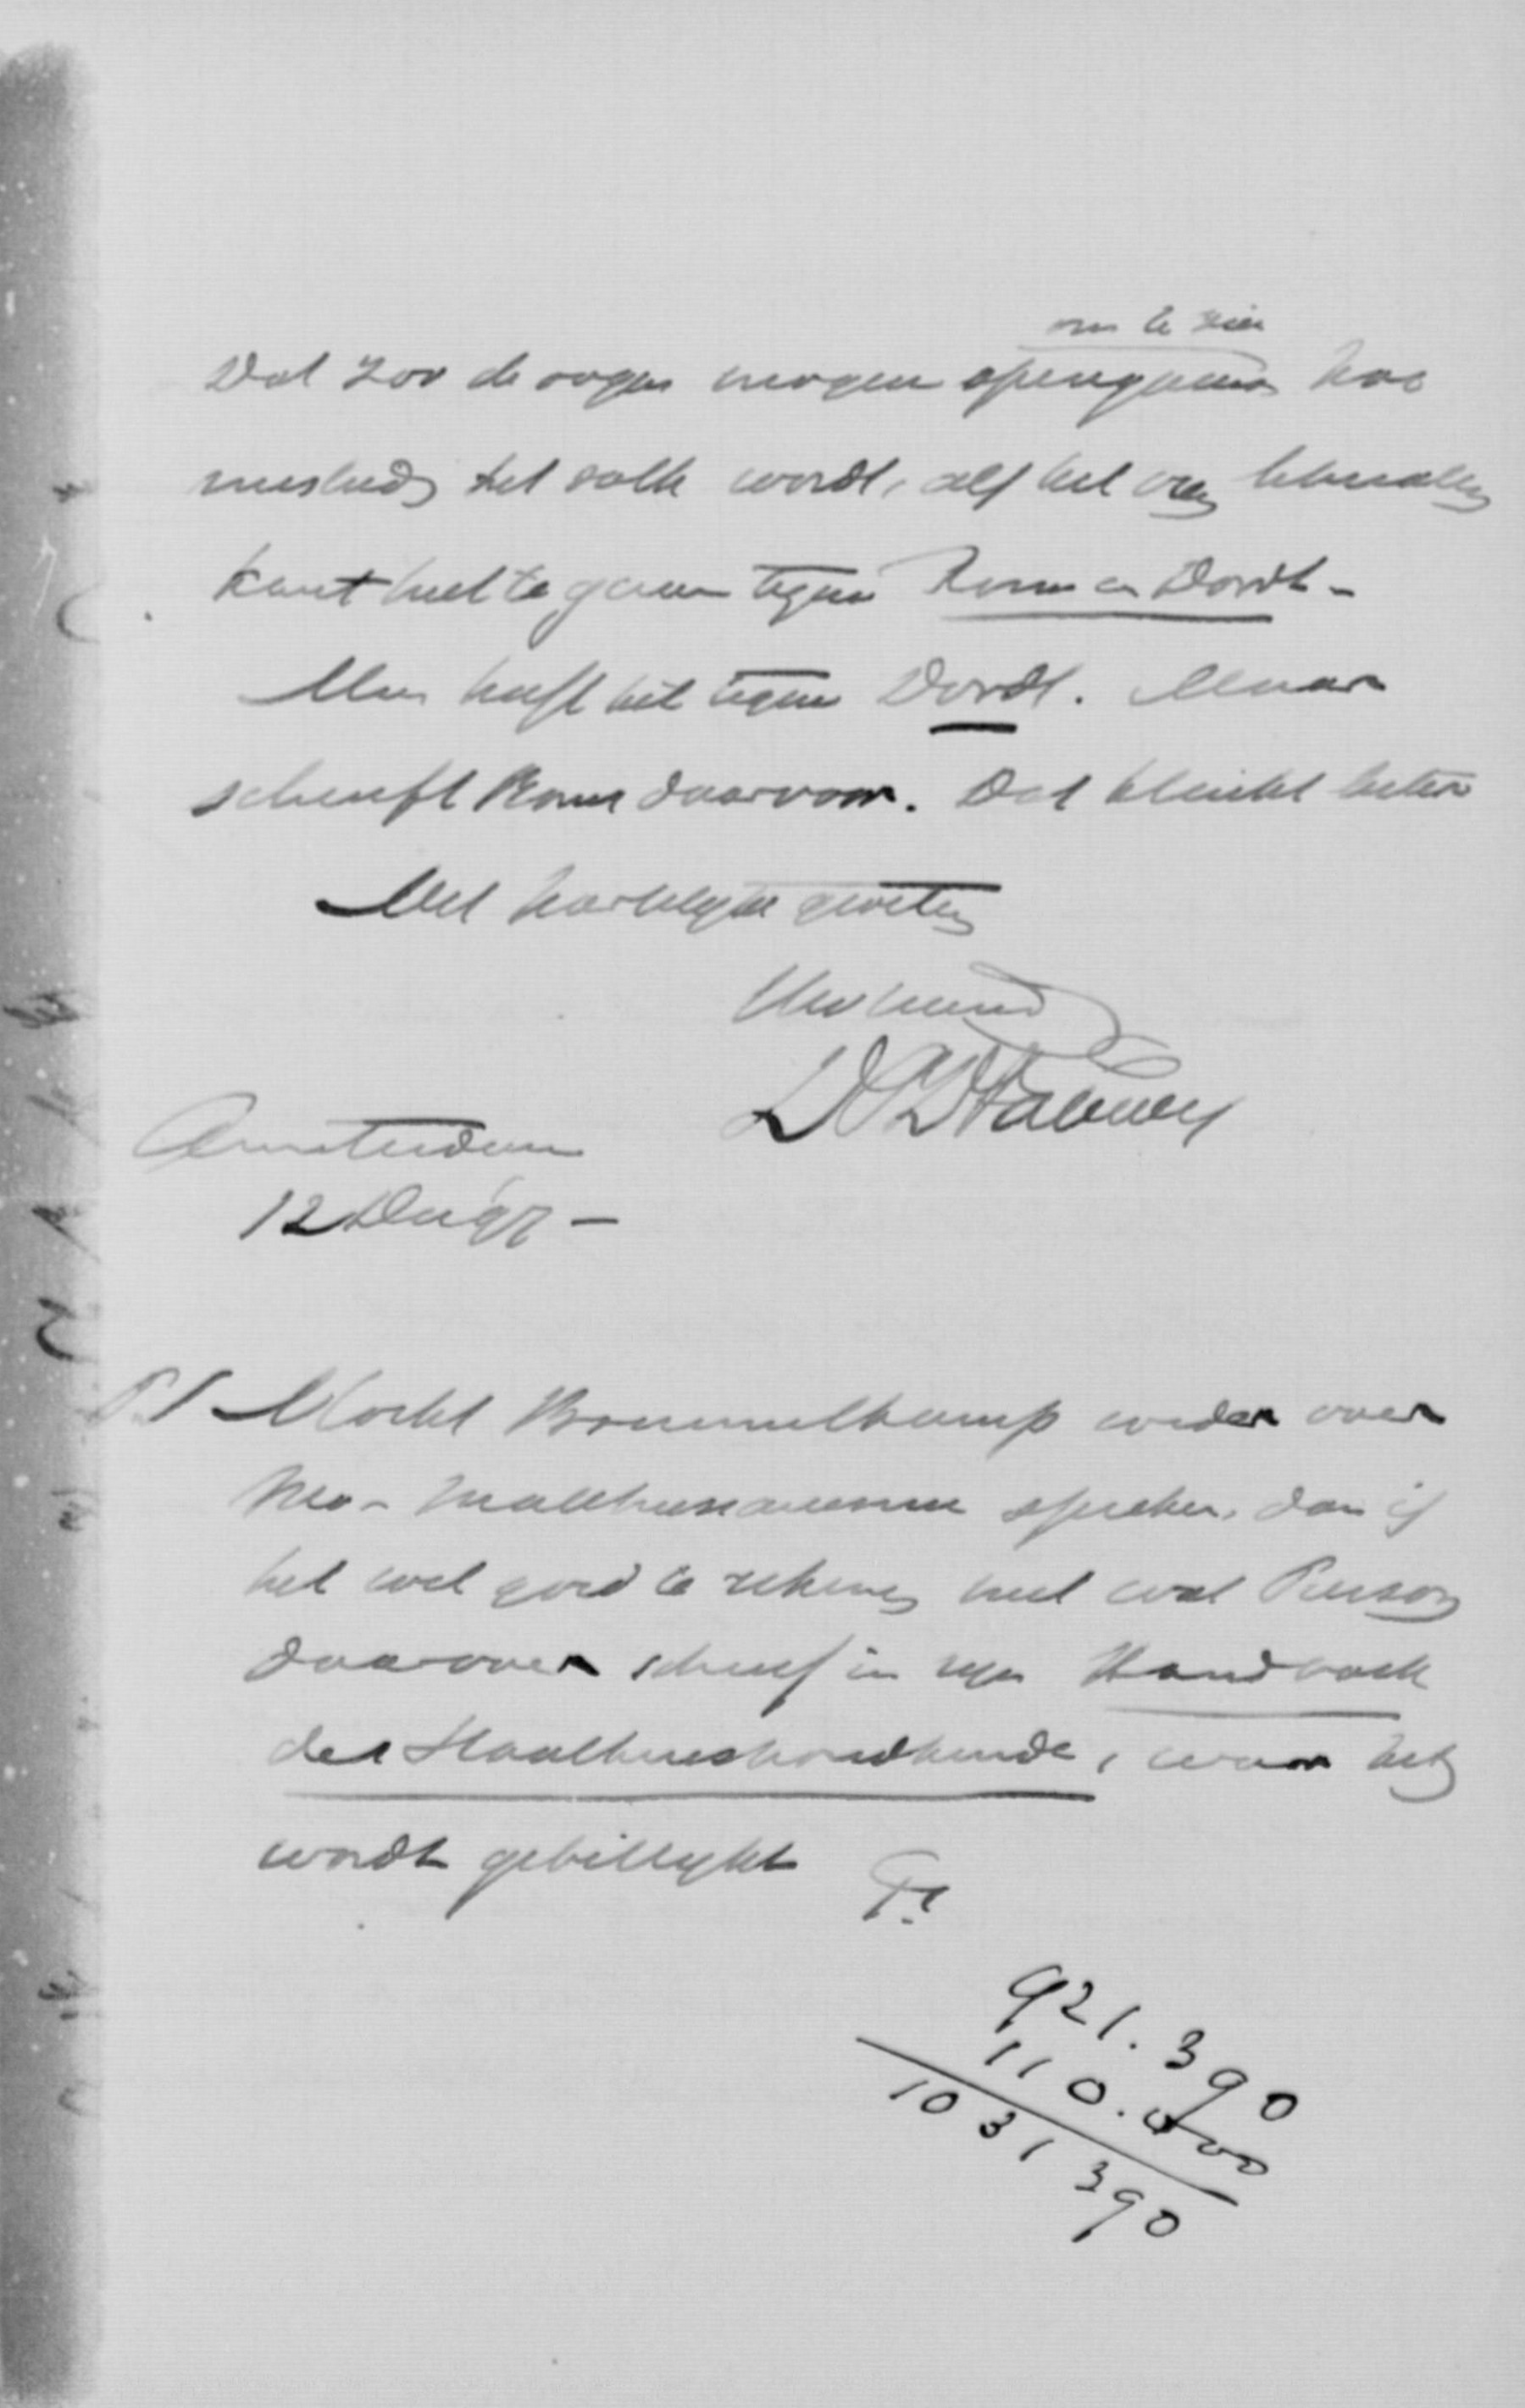 om te zien
Dat zoo de oogen mogen opengaan hoe
misleid het volk wordt, als het van liberalen
kant heet te gaan tegen Rome en Dordt -
Men heeft het tegen Dordt. Maar
schuift Rome daarvoor. Dat klinkt beter
Met hartelijke groeten
Uw vriend
DPDFabius
Amsterdam
12 Dec 97 -
P.S Mocht Brummelkamp weder over
Neo-Malthusianisme spreken, dan is
het wel goed te rekenen met wat Pierson
daarover schreef in zijn Handboek
der Staathuishoudkunde, waar het
wordt gebillijkt
921.390
110.000
1031390